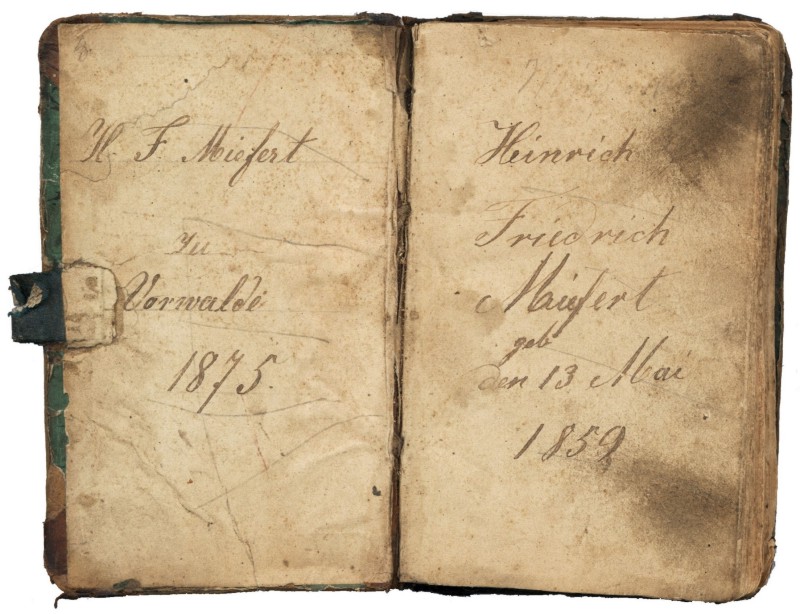 H. F. Miefert
zu
Vorwalde
1875.
Heinrich
Friedrich
Maiefert
geb
den 13 Mai
1859